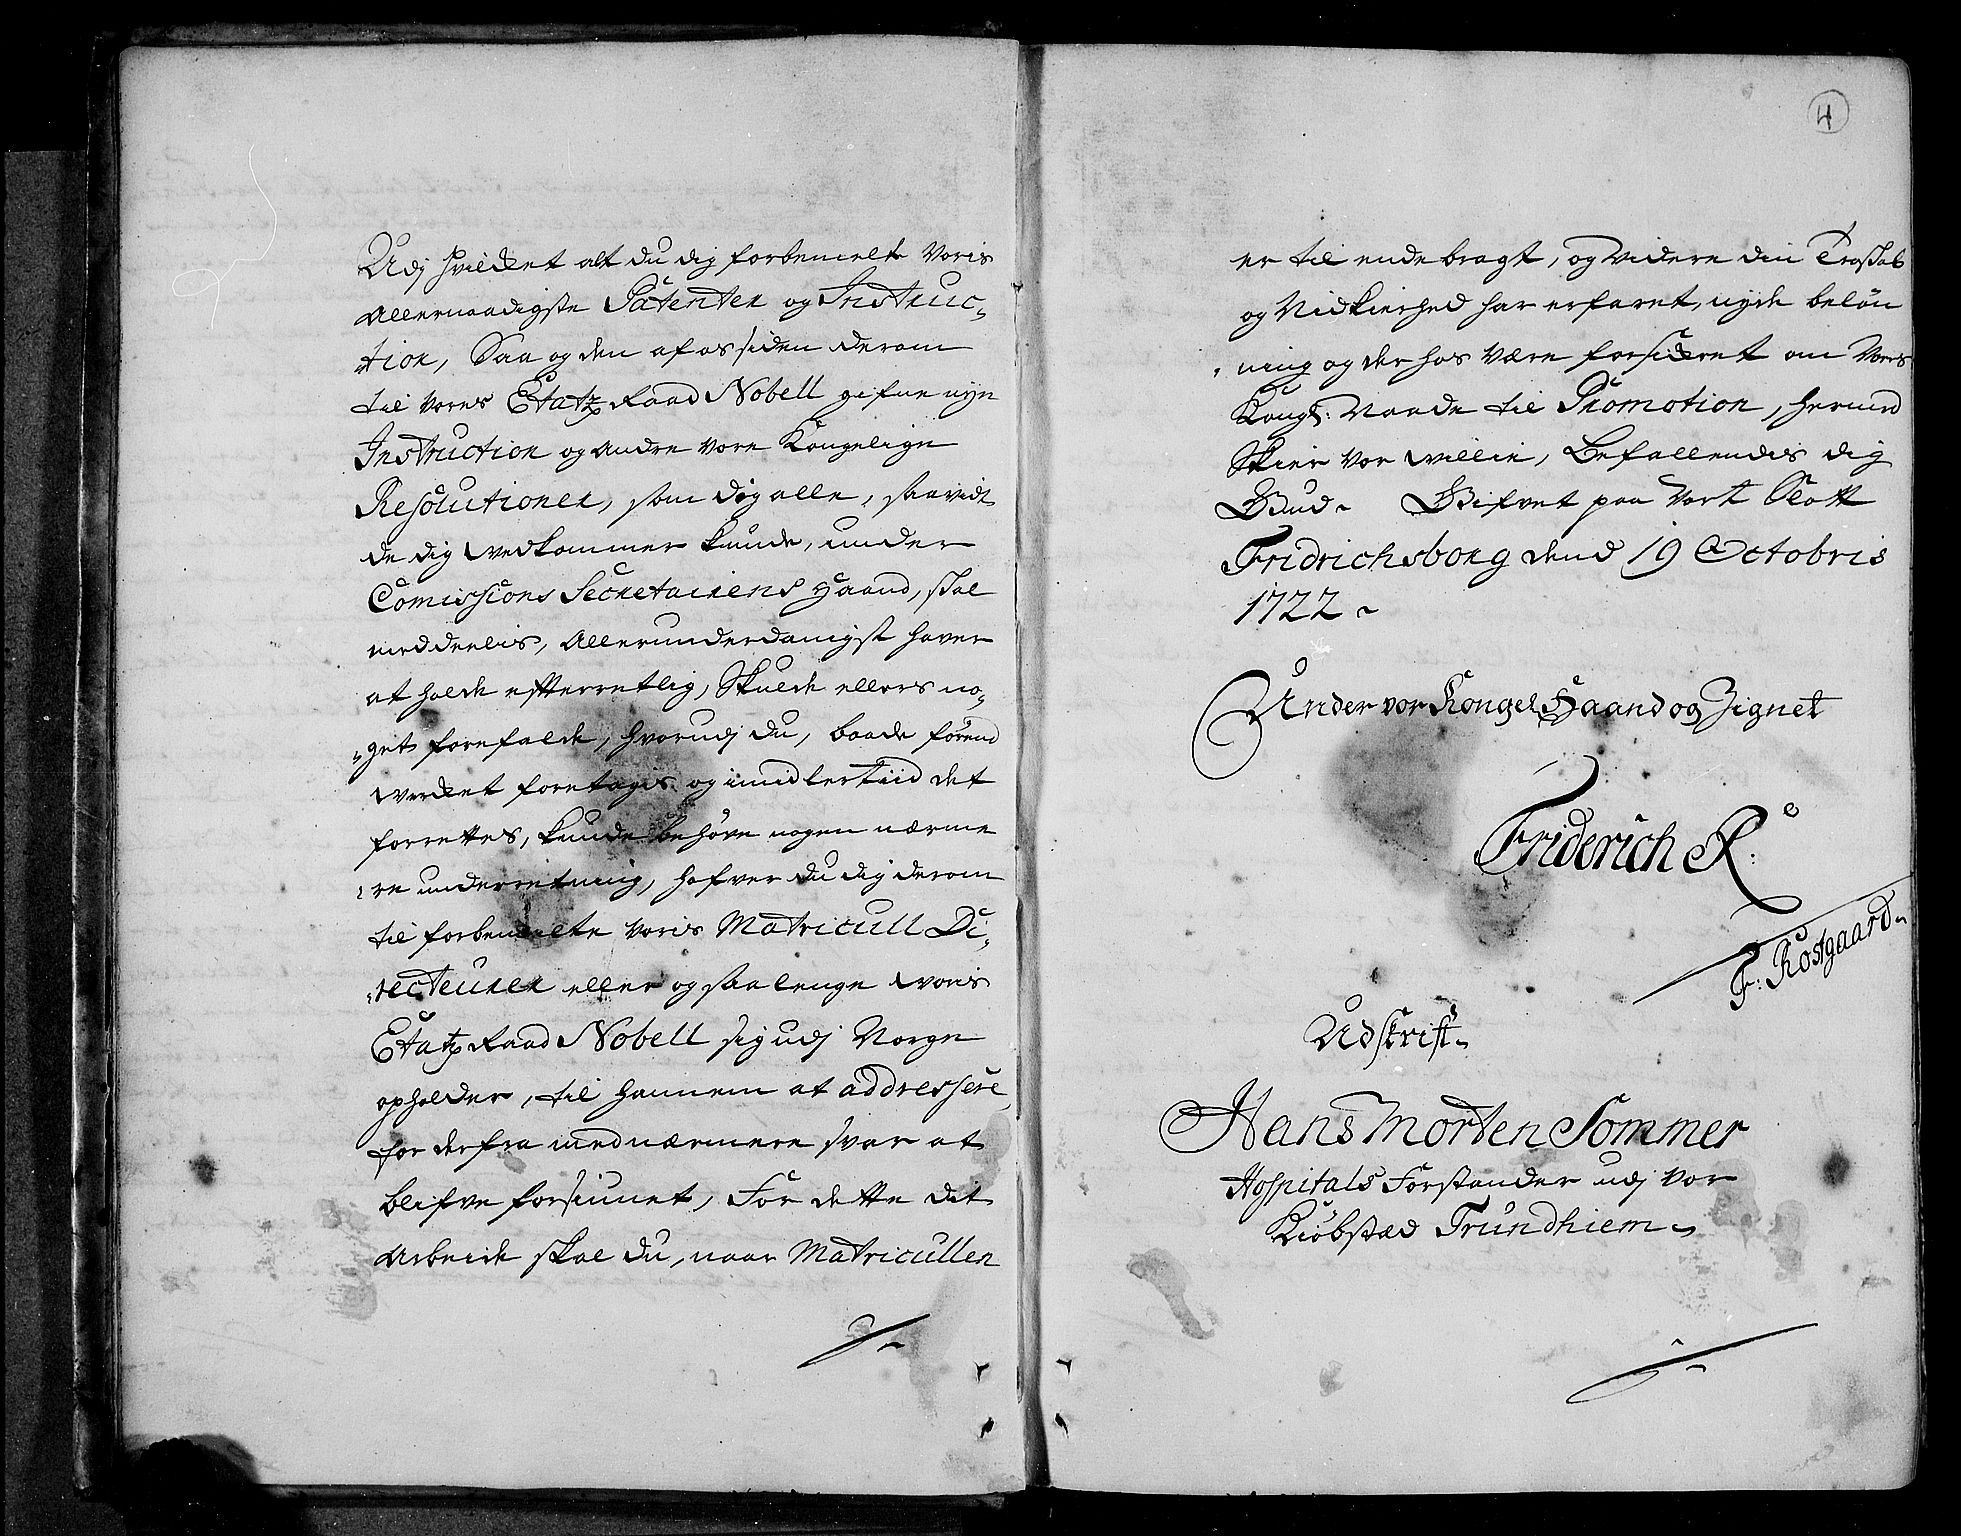 Udj hvilcket alt du dig forbemelte Voris
Allernaadigste Patenter og Instruc-
tion, Saa og den af os siden derom
til Vores EtatzRaad Nobell gifne nye
Instruction og andre Vore Kongelige
Resolutioner, som dig alle, saavidt
de dig wedkommer kunde, under
Comissions Secretairens Haand, skal
meddeelis, Allerunderdanigst haver
at holde efterretlig, Skulde ellers no-
get forefalde, hvorudj du, baade førend
Wercket foretagis og imidlertiid det
forrettes, kunde behøve nogen nærme
re underretning, hafver du dig derom
til forbemelte Voris Matricull Di-
recteurer eller og saa lenge Woris
EtatzRaad Nobell sig udj Norge
opholder, til hannem at addressere
for derfra med nærmere svar at
blifve forsiunet, For dette dit
Arbeide skal du, naar Matricullen
4
er til ende bragt, og Videre din Troskab
og Nidkierhed har erfaret, nyde beløn
ning og der hos være forsickret om Vores
Kongl: Naade til Promotion, hermed
Skier Vor willie, Befallendis dig
Gud. Gifvet paa Vort Slott
Fridrichsborg dend 19 Octobris
1722.
Under vor Kongel Haand og Zignet
Friderich R:
F: Rostgaard.
Udskrift.
Hans Morten Sommer
Hospitals Forstander udj Vor
Kiøbstæd Trundhiem.